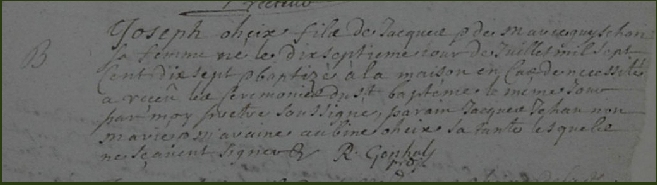 Joseph oheix fils de Jacque et de Marie guy Jehan
B sa femme né le dix septieme jour de Juillet mil sept
Cent dix sept et baptizé à la maison en Cas de necessité
a receu les Ceremonies dudit baptame le meme jour
par moy pretre soussigné, parain Jacque Jehan non
marié, maraine aubine oheix sa tante lesquels
ne sçavent signer R. Gophuls